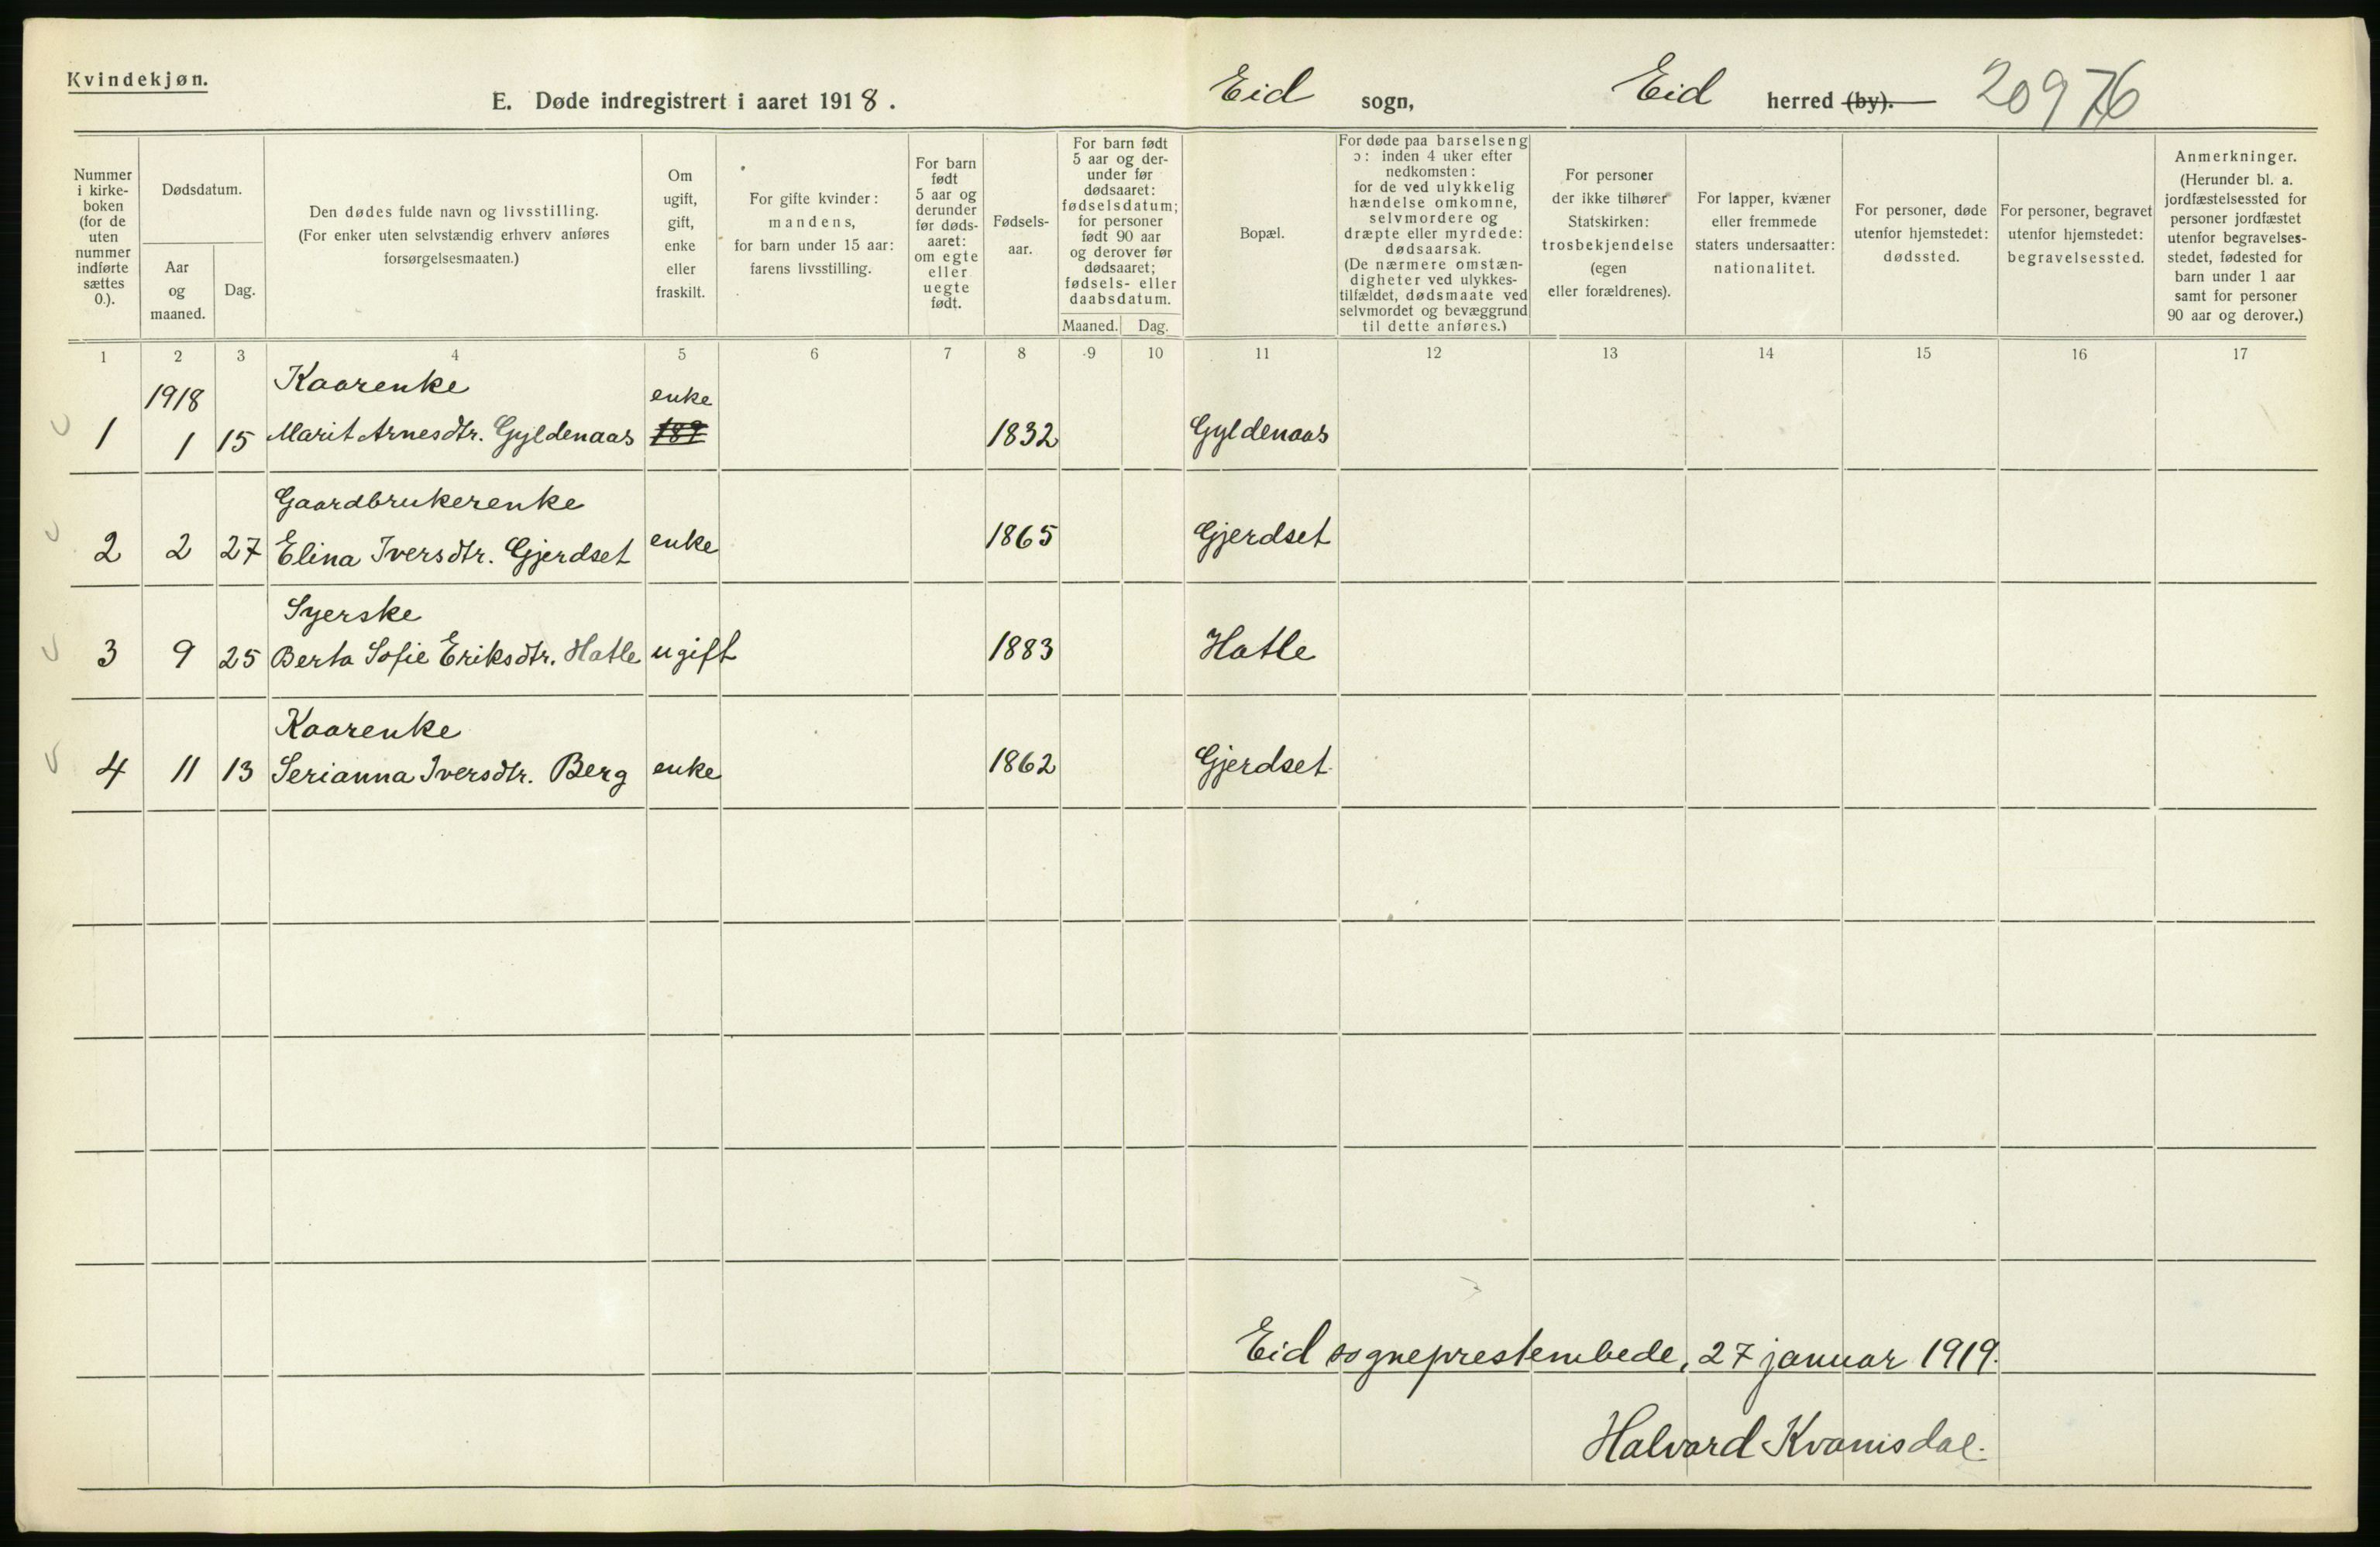 Kvindekjøn.
E. Døde indregistrert i aaret 1918.
Eid sogn, Eid herred (by). 20976
Nummer
i kirke-
boken
(for de
uten
nummer
indførte
sættes
0.).
Dødsdatum.
Aar
og
maaned.
Dag.
Den dødes fulde navn og livsstilling.
(For enker uten selvstændig erhverv anføres
forsørgelsesmaaten.)
Om
ugift,
gift,
enke
eller
fraskilt.
For gifte kvinder:
mandens,
for barn under 15 aar:
farens livsstilling.
For barn
født
5 aar og
derunder
før døds-
aaret:
om egte
eller
uegte
født.
Fødsels-
aar.
For barn født
5 aar og der-
under før
dødsaaret:
fødselsdatum;
for personer
født 90 aar
og derover før
dødsaaret;
fødsels- eller
daabsdatum.
Maaned. Dag.
Bopæl.
For døde paa barselseng
ɔ: inden 4 uker efter
nedkomsten:
for de ved ulykkelig
hændelse omkomne,
selvmordere og
dræpte eller myrdede:
dødsaarsak.
(De nærmere omstæn-
digheter ved ulykkes-
tilfældet, dødsmaate ved
selvmordet og bevæggrund
til dette anføres.)
For personer
der ikke tilhører
Statskirken:
trosbekjendelse
(egen
eller forældrenes).
For lapper, kvæner
eller fremmede
staters undersaatter:
nationalitet.
For personer, døde
utenfor hjemstedet:
dødssted.
For personer, begravet
utenfor hjemstedet:
begravelsessted.
Anmerkninger.
(Herunder bl. a.
jordfæstelsessted for
personer jordfæstet
utenfor begravelses-
stedet, fødested for
barn under 1 aar
samt for personer
90 aar og derover.)
1 2 3 4 5 6 7 8 9 10 11 12 13 14 15 16 17
1918 Kaarenke enke
1 1 15 Marit Arnesdtr. Gyldenaas 1832 Gyldenaas
Gaardbrukerenke
2 2 27 Elina Iversdtr. Gjerdset enke 1865 Gjerdset
Syerske
3 9 25 Berta Sofie Eriksdtr. Hatle ugift 1883 Hatle
Kaarenke
4 11 13 Serianna Iversdtr. Berg enke 1862 Gjerdset
Eid sogneprestembede, 27 januar 1919.
Halvard Kvamsdal.